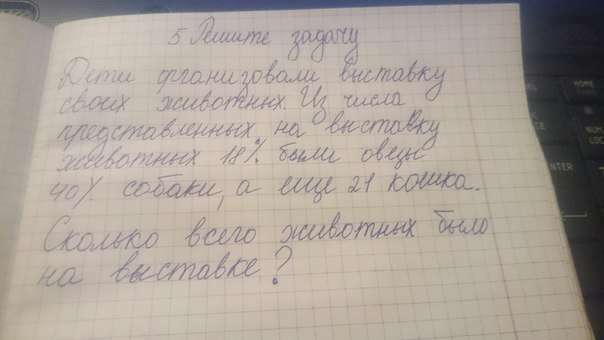 5 Решите задачу
Дети организовали выставку
своих животных. Из числа
представленных на выставку
животных 18% были овцы
40% собаки, а еще 21 кошка.
Сколько всего животных было
на выставке?